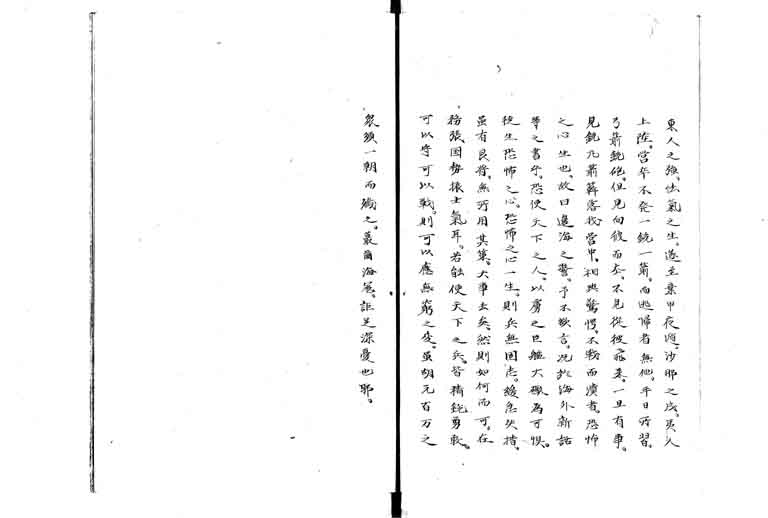 東人之強怯氣之生。遂至棄甲夜遁。沙那之戍。賊人
上陸。營卒不発一銃一箭。而逃帰者無他。平日所習。
弓箭銃砲。但見向彼而去。不見從彼飛来。一旦有事。
見銃丸箭簇落我営中。相與驚愕。不戦而潰者。恐怖
之心生也。故曰邊海之警。予不欲言。况於海外新話
等之書乎。恐使天下之人。以虜之巨艦大礮為可惧。
徒生恐怖之心。恐怖之心一生。則兵無固志。緩急失措。
雖有良将。無所用其策。大事去矣。然則如何而可。在
務張国勢振士氣耳。若能使天下之兵。皆精鋭勇敢。
可以守可以戦。則可以應無窮之変。雖胡元百万之
衆須一朝而殲之。蕞爾海寇。詎足深憂也耶。